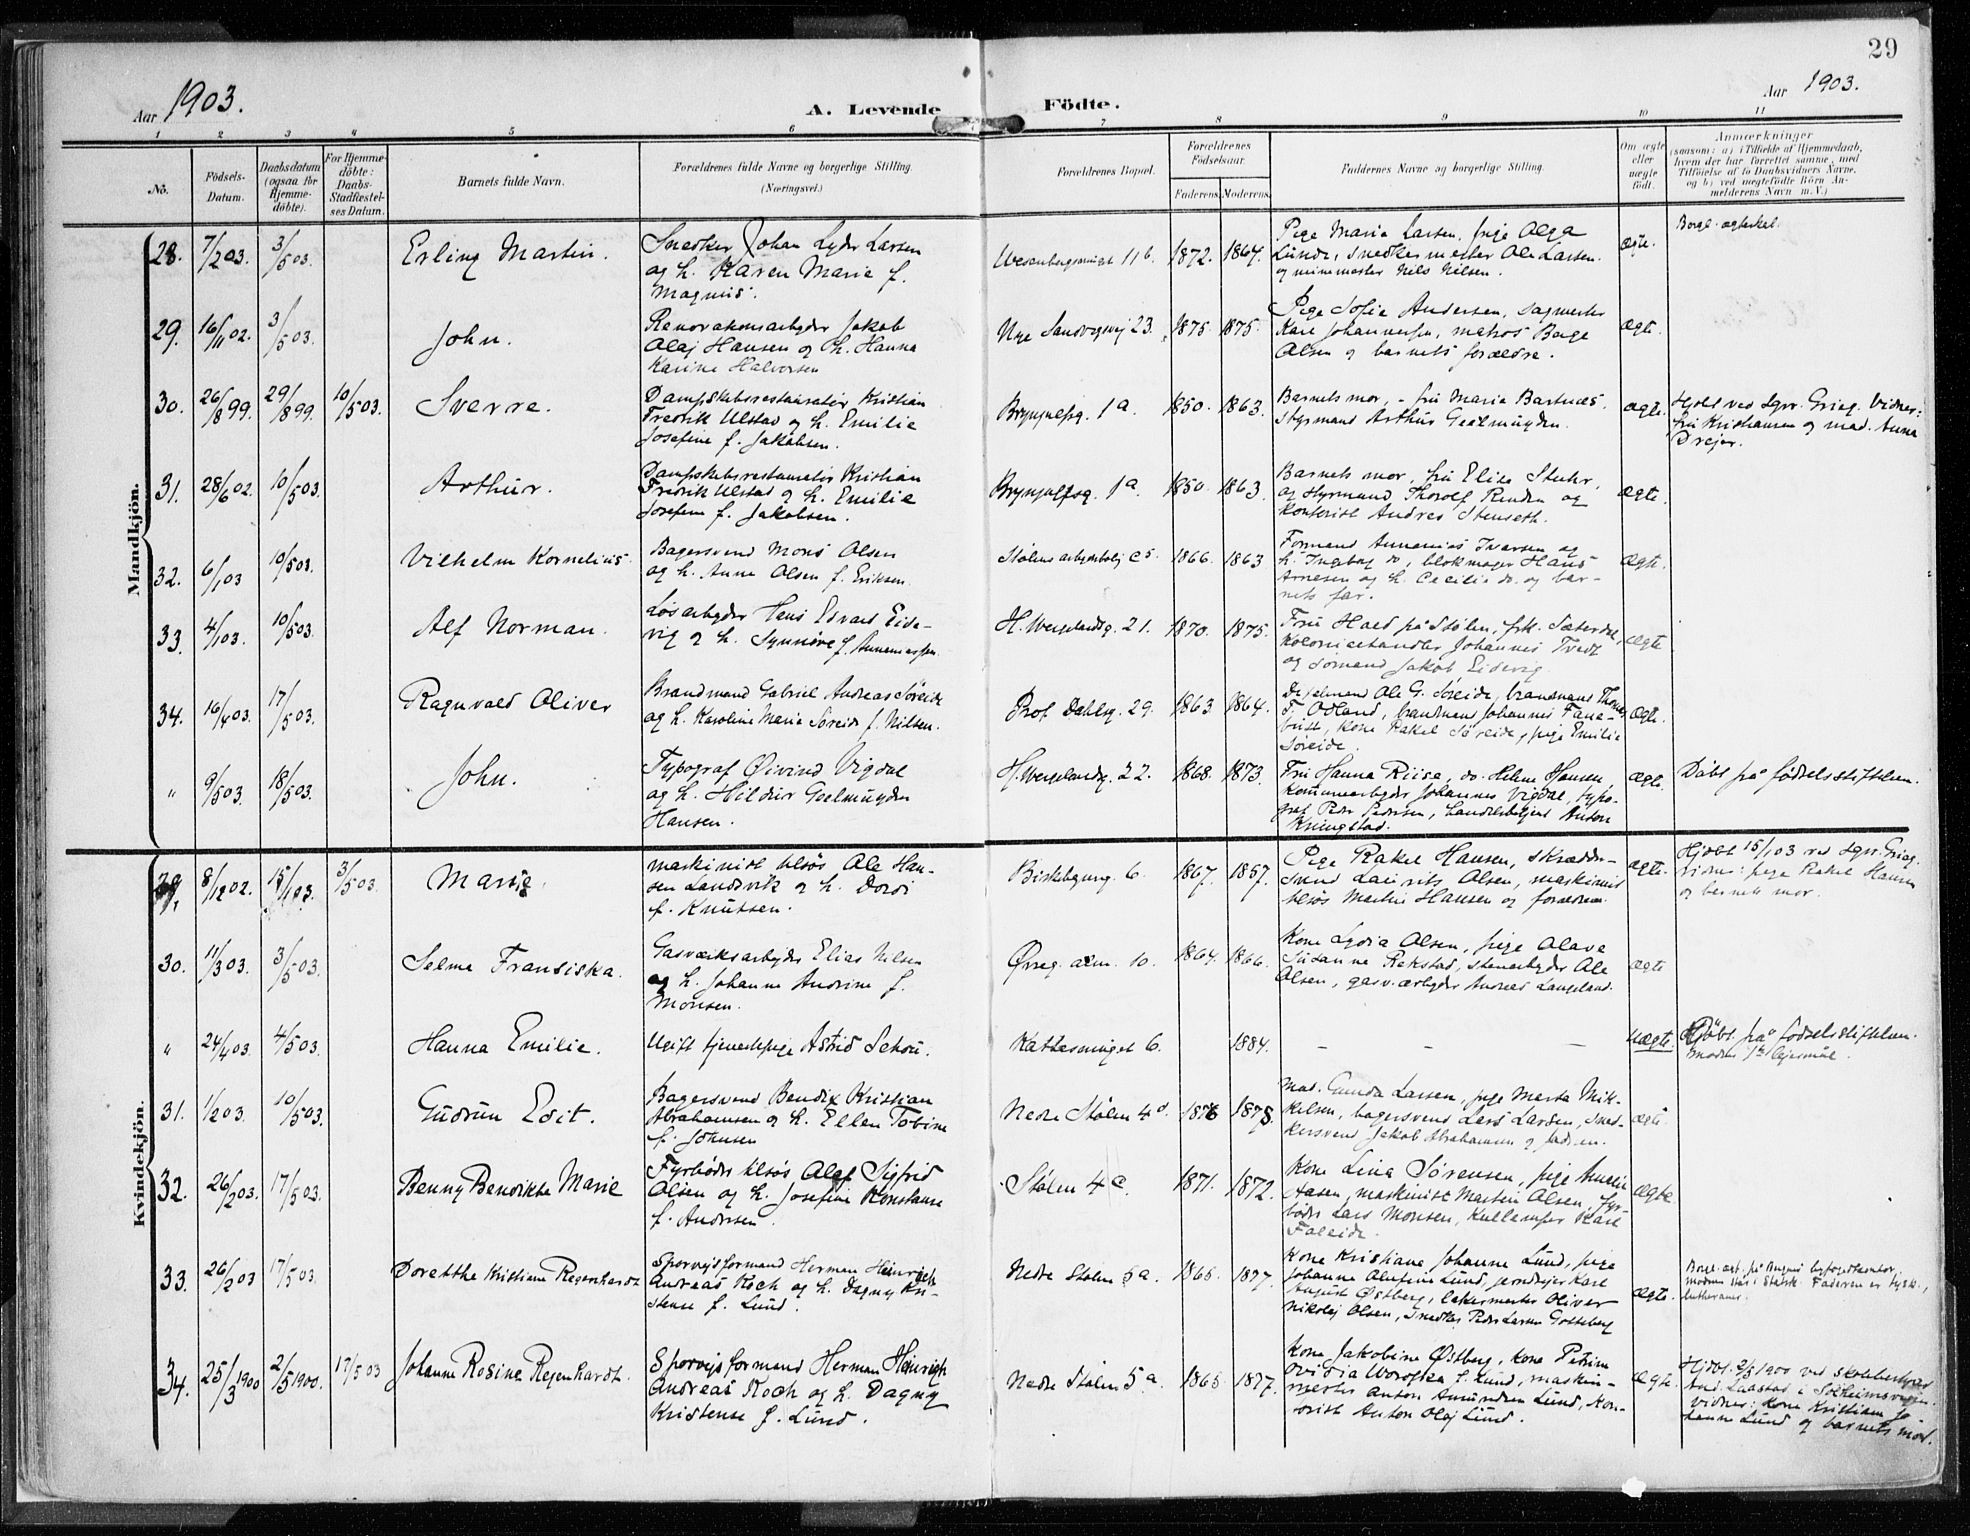 29
Aar 1903.
A. Levende Födte.
Aar 1903.
1 2 3 4 5 6 7 8 9 10 11
No.
Födsels-Datum.
Daabsdatum (ogsaa for Hjemme-döbte).
For Hjemme-döbte: Daabs-Stadfæstel-ses Datum.
Barnets fulde Navn.
Forældrenes fulde Navne og borgerlige Stilling. (Næringsvei.)
Forældrenes Bopæl.
Forældrenes Födselsaar.
Faderens. Moderens.
Faddernes Navne og borgerlige Stilling.
Om ægte eller uægte födt.
Anmærkninger
(saasom: a) i Tilfælde af Hjemmedaab,
hvem der har forrettet samme, med
Tilföielse af to Daabsvidners Navne,
og b) ved uægtefödte Börn An-
melderens Navn m. V.)
Mandkjön.
28. 7/2 03. 3/5 03. Erling Martin.
Snedker Johan Lyder Larsen
og h. Karen Marie f.
Magnus.
11b. 1872. 1864.
Pige Marie Larsen, pige Olga
Lunde, snedkermester Ole Larsen
og minemester Nils Nilsen.
ægte.
Borgl. ægteskab.
29. 16/11 02. 3/5 03. John.
Renovationsarbeider Jakob
Olaj Hansen og h. Hanna
Karine Halvorsen
Nye Sandvigsvej 23. 1875. 1875.
Pige Sofie Andersen,
Karl Johannesen, matros
Olsen og barnets forældre.
ægte.
30. 26/8 99. 29/8 99. 10/5 03. Sverre.
Dampskibsrestauratör Kristian
Fredrik Ulstad og h. Emilie
Josefine f. Jakobsen.
1a. 1850. 1863.
Barnets mor, - fru Marie
styrmand Arthur Geelmuyden.
ægte.
Hjdbt ved sgpr. Grieg. Vidner:
fru Kristiansen og mad. Anna
Drejer.
31. 28/6 02. 10/5 03. Arthur.
Dampskibsrestauratör Kristian
Fredrik Ulstad og h. Emilie
Josefine f. Jakobsen.
1a. 1850. 1863.
Barnets mor, fru Elisa Stuhr,
og styrmand Thorolf og
kontorist Andres Stenseth.
ægte.
32. 6/1 03 10/5 03. Vilhelm Kornelius
Bagersvend Mons Olsen
og h. Anne Olsen f. Eriksen.
Stölens arbeiderbolig C 5. 1866. 1863
Formand Annanias Iversen og
h. Ingeborg do, blokmager Hans
Arnesen og h. Cecilie do. og bar-
nets far.
ægte.
33. 4/1 03. 10/5 03. Alf Norman.
Lösarbeyder Hans Edvard Eide-
vig og h. Synnöve f. Annaniassen.
H. Wergelandsg. 21. 1870. 1875.
Fru Hald på Stölen, frk. Sæterdal,
Kolonialhandler Johannes Tvedt
og sömand Jakob Eidevig.
ægte
34. 16/4 03. 17/5 03. Ragnvald Oliver
Brandmand Gabriel Andreas Söreide
og h. Karoline Marie Söreide f. Nilsen.
Prof. Dahlsg. 29. 1863. 1864.
Ole G. Söreide, brandmand Thomas
T. Odland, brandmand Johannes Fane-
, kone Rakel Söreide, pige Emilie
Söreide.
ægte.
" 9/5 03. 18/5 03. John.
Typograf Øivind Vigdal
og h. Hildur Geelmuyden
Hansen.
H. Wergelandsg. 22. 1868. 1873.
Fru Hanna Riise, do. Helene Hansen,
Johannes Vigdal, typo-
graf Pedersen, handelsbetjent Anton
Kringstad.
ægte.
Döbt på födselsstiftelsen.
Kvindekjön.
29. 8/12 02. 15/1 03. 3/5 03. Marie.
Maskinist Ole Han-
sen Landsvik og h. Dordi
f. Knutsen.
6. 1867. 1857.
Pige Rakel Hansen, skrædder-
svend Laurits Olsen, maskinist
Martin Hansen og forældrene.
ægte.
Hjdbt 15/1 03 ved sgpr. Grieg.
Vidner: pige Rakel Hansen
og barnets mor.
30. 11/3 03. 3/5 03. Selma Fransiska.
Gasværksarbeyder Elias Nilsen
og h. Johanne Andrine f.
Monsen.
Øvreg. alm. 10. 1864. 1866.
Kone Lydia Olsen, pige Olava
Susanne Rekstad, stenarbeyder Ole
Olsen, gasv.arbeyder Andreas Langeland.
ægte
" 24/4 03. 4/5 03. Hanna Emilie.
Ugift tjenestepige Astrid Schou.
Kattesmuget 6. 1884. – – –
uægte.
Döbt på födselsstiftelsen.
Modrens 1ste lejermål.
31. 1/2 03. 10/5 03. Gudrun Edit.
Bagersvend Bendix Kristian
Abrahamsen og h. Ellen Tobine
f. Johnsen
Nedre Stölen 4 d. 1876 1878.
Mad. Gunda Larsen, pige Marta Mik-
kelsen, bagersvend Lars Larsen, sned-
kersvend Jakob Abrahamsen og fadren.
ægte.
32. 26/2 03. 17/5 03. Benny Bendikte Marie
Fyrböder Olaf Sigfrid
Olsen og h. Josefine Konstanse
f. Andersen.
Stölen 4 c. 1871. 1872.
Kone Lina Sörensen, pige
Aasen, maskinist Martin Olsen, fyr-
böder Lars Monsen, Karl
Faleide.
ægte
33. 26/2 03 17/5 03. Dorethe Kristiane Regenhardt
Sporvejsformand Herman Heinrich
Andreas Koch og h. Dagny Kri-
stense f. Lund.
Nedre Stölen 5 a. 1865. 1877.
Kone Kristiane Johanne Lund, pige
Johanne Lund, Karl
August Østberg, Oliver
Nikolej Olsen, snedker Peder Larsen
ægte.
Borgl. ægt. på Bergens byfogedkontor
. Faderen er tysk,
lutheraner.
34. 25/3 1900 2/5 1900. 17/5 03 Johanne Rosine Regenhardt.
Sporvejsformand Herman Heinrich
Andreas Koch og h. Dagny
Kristense f. Lund.
Nedre Stölen 5 a. 1865 1877.
Kone Jakobine Østberg, kone Petrine
Lund, maskin-
mester Anton Amundsen Lund, kon-
torist Anton Olaj Lund.
ægte.
Hjdbt. 2/5 1900 ved
And. Laastad i Solheimsvigen.
Vidner: Kone Kristiane Jo-
hanne Lund og barnets mor.